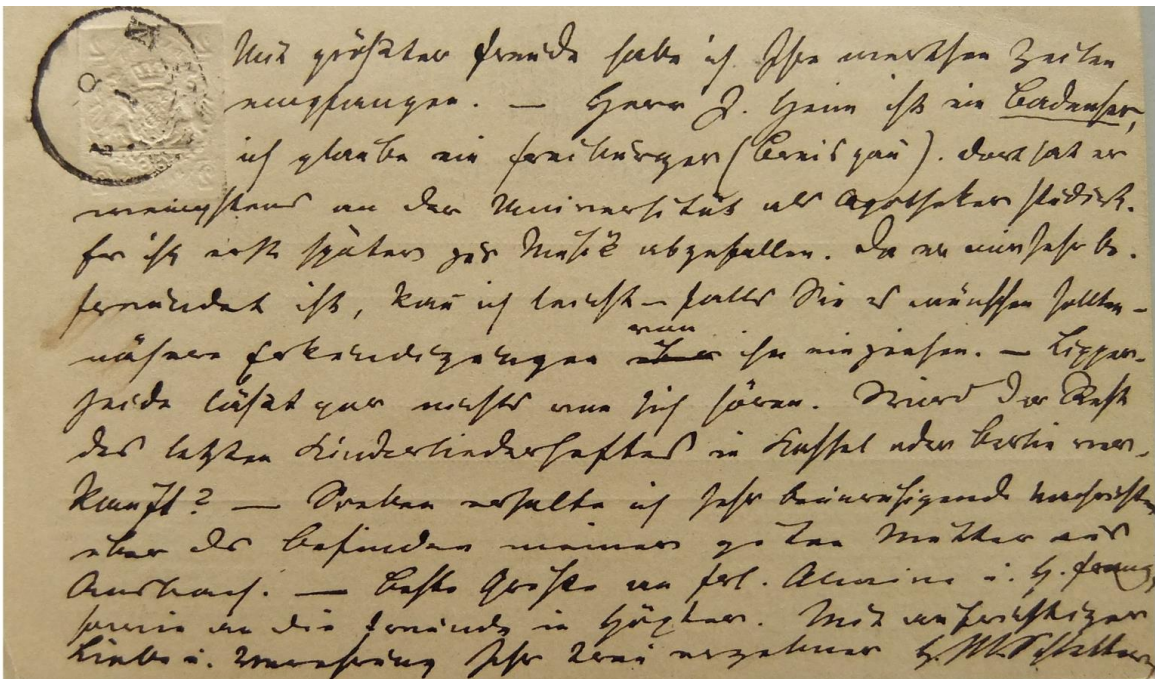 Mit größter Freude habe ich Ihre werthen Zeilen
empfangen. — Herr J. Heim ist ein Badenser,
ich glaube ein Freiburger (Breisgau). Dort hat er
wenigstens an der Universität als Apotheker studirt.
Er ist erst später zur Musik abgefallen. Da er mir sehr be-
freundet ist, kan̄ ich leicht – falls Sie es wünschen sollten –
nähere Erkundigungen von ihm einziehen. — Lipper-
heide läßt gar nichts von sich hören. Wird der Rest
des letzten Kinderliederheftes in Kassel oder Berlin ver-
kauft? — Soeben erhalte ich sehr beunruhigende Nachrichten
über das Befinden meiner guten Mutter aus
Ansbach. — Beste Grüße an Frl. Alwine u. H. Franz,
sowie an die Freunde in Höxter. Mit aufrichtiger
Liebe u. Verehrung Ihr treu ergebner H. M. Schletterer